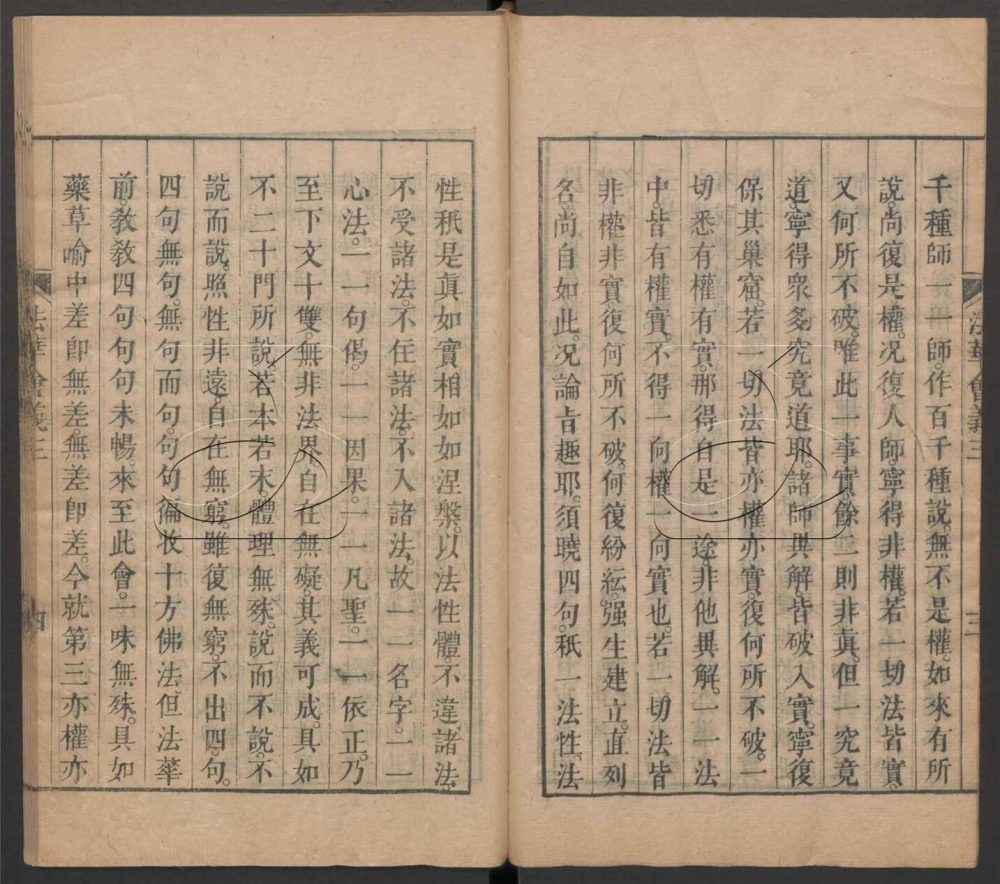 千種師一一師。作百千種說。無不是權。如來有所
說。尚復是權。况復人師。寧得非權。若一切法皆實。
又何所不破。唯此一事實。餘二則非眞。但一究竟
道。寧得衆多究竟道耶。諸師異解。皆破入實。寧復
保其巢窟。若一切法皆亦權亦實。復何所不破。一
切悉有權有實。那得自是一途。非他異解。一一法
中。皆有權實。不得一向權一向實也。若一切法皆
非權非實。復何所不破。何復紛紜。强生建立。直列
名。尚自如此。况論旨趣耶。須曉四句。秖一法性。法
法華會義三
三
性秖是眞如實相如如涅槃。以法性體。不違諸法
不受諸法。不住諸法。不入諸法。故一一名字。一一
心法。一一句偈。一一因果。一一凡聖。一一依正。乃
至下文十雙。無非法界。自在無礙。其義可成。具如
不二十門所說。若本若末。體理無殊。說而不說。不
說而說。照性非遠。自在無窮。雖復無窮。不出四句。
四句無句。無句而句。句句徧收十方佛法。但法華
前。教教四句。句句未暢。來至此會。一味無殊。具如
藥草喻中差卽無差。無差卽差。今就第三亦權亦
法華會義三
四